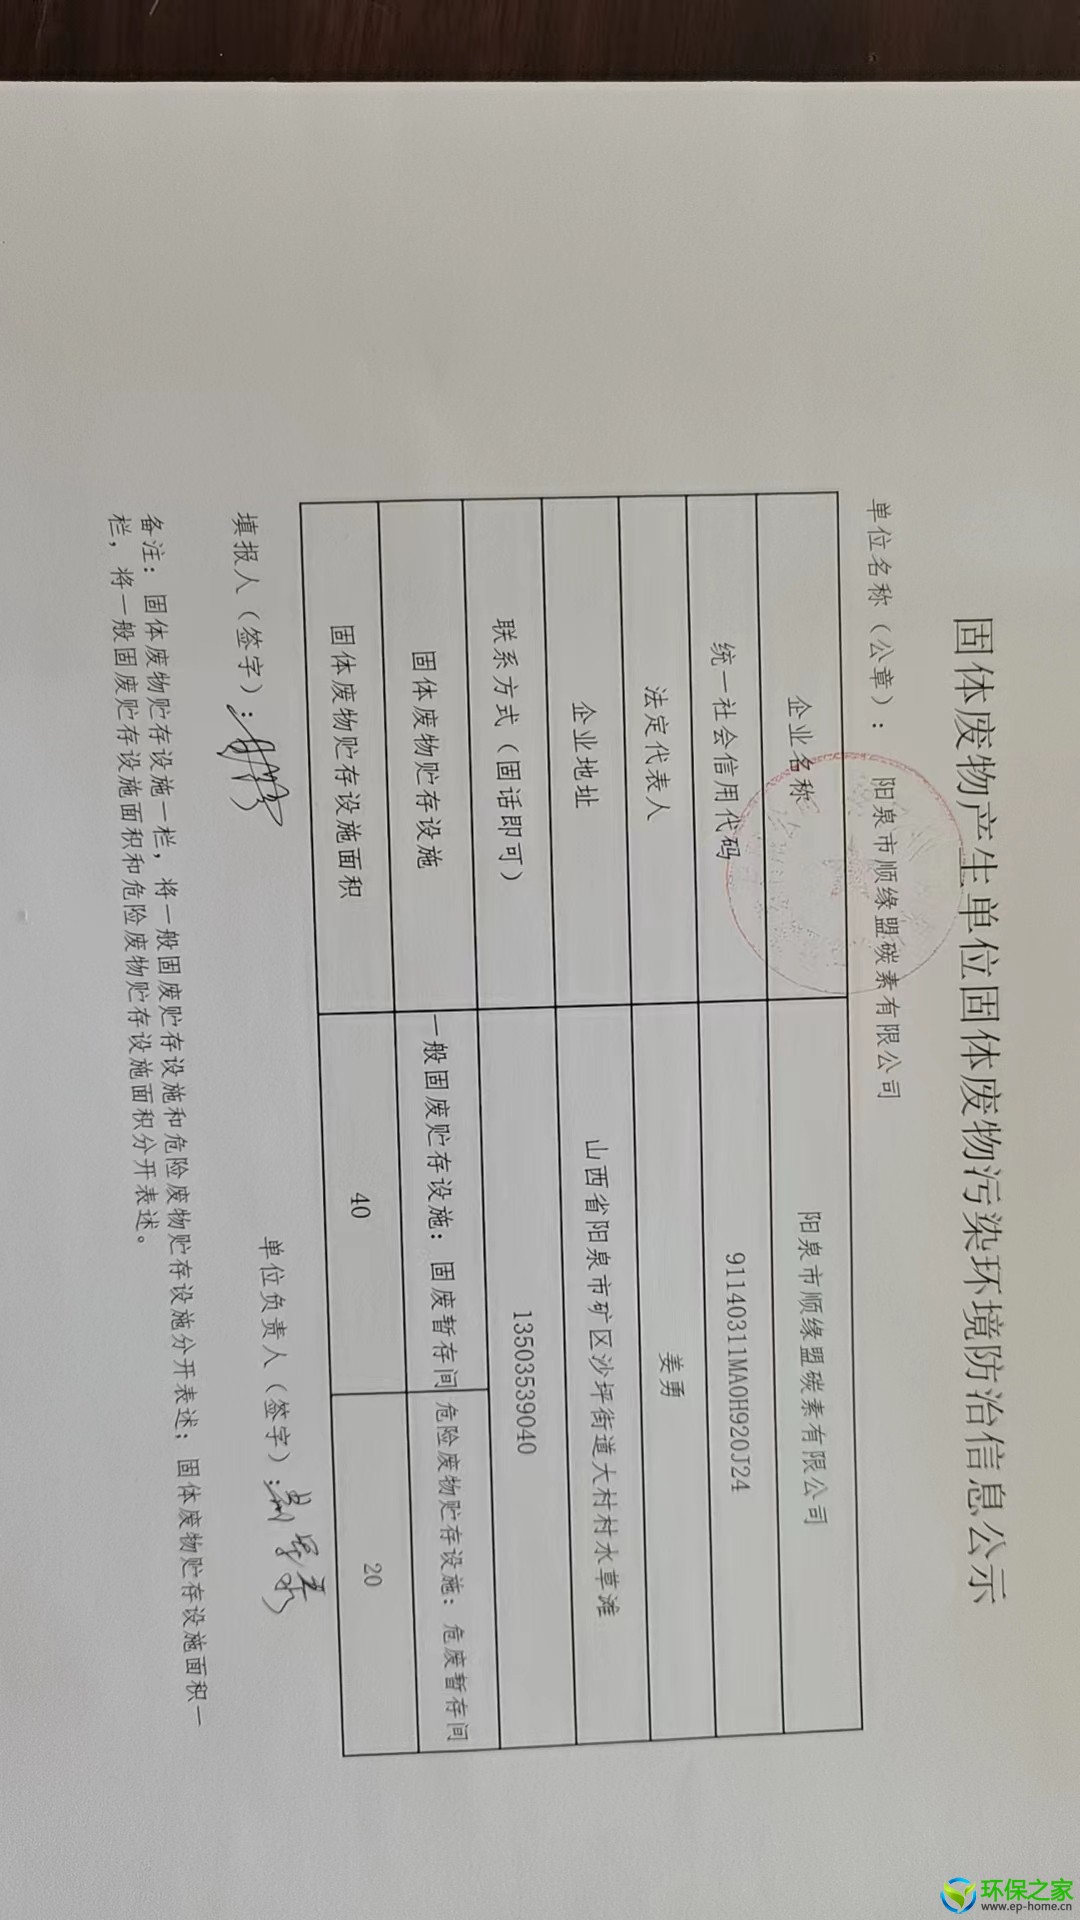 固体废物产生单位固体废物污染环境防治信息公示
单位名称（公章）： 阳泉市顺缘盟碳素有限公司
企业名称 阳泉市顺缘盟碳素有限公司
统一社会信用代码 91140311MA0H920J24
法定代表人 姜勇
企业地址 山西省阳泉市矿区沙坪街道大村村水草滩
联系方式（固话即可） 13503539040
固体废物贮存设施 一般固废贮存设施：固废暂存间 危险废物贮存设施：危废暂存间
固体废物贮存设施面积 40 20
填报人（签字）： 单位负责人（签字）：
备注：固体废物贮存设施一栏，将一般固废贮存设施和危险废物贮存设施分开表述；固体废物贮存设施面积一
栏，将一般固废贮存设施面积和危险废物贮存设施面积分开表述。
环保之家
www.ep-home.cn